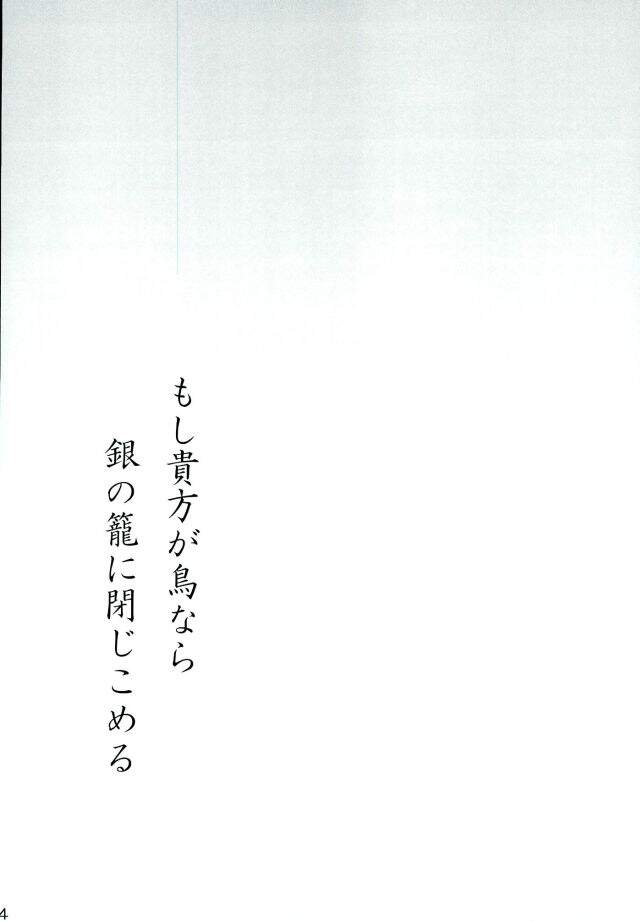 もし貴方が鳥なら
銀の籠に閉じこめる
4